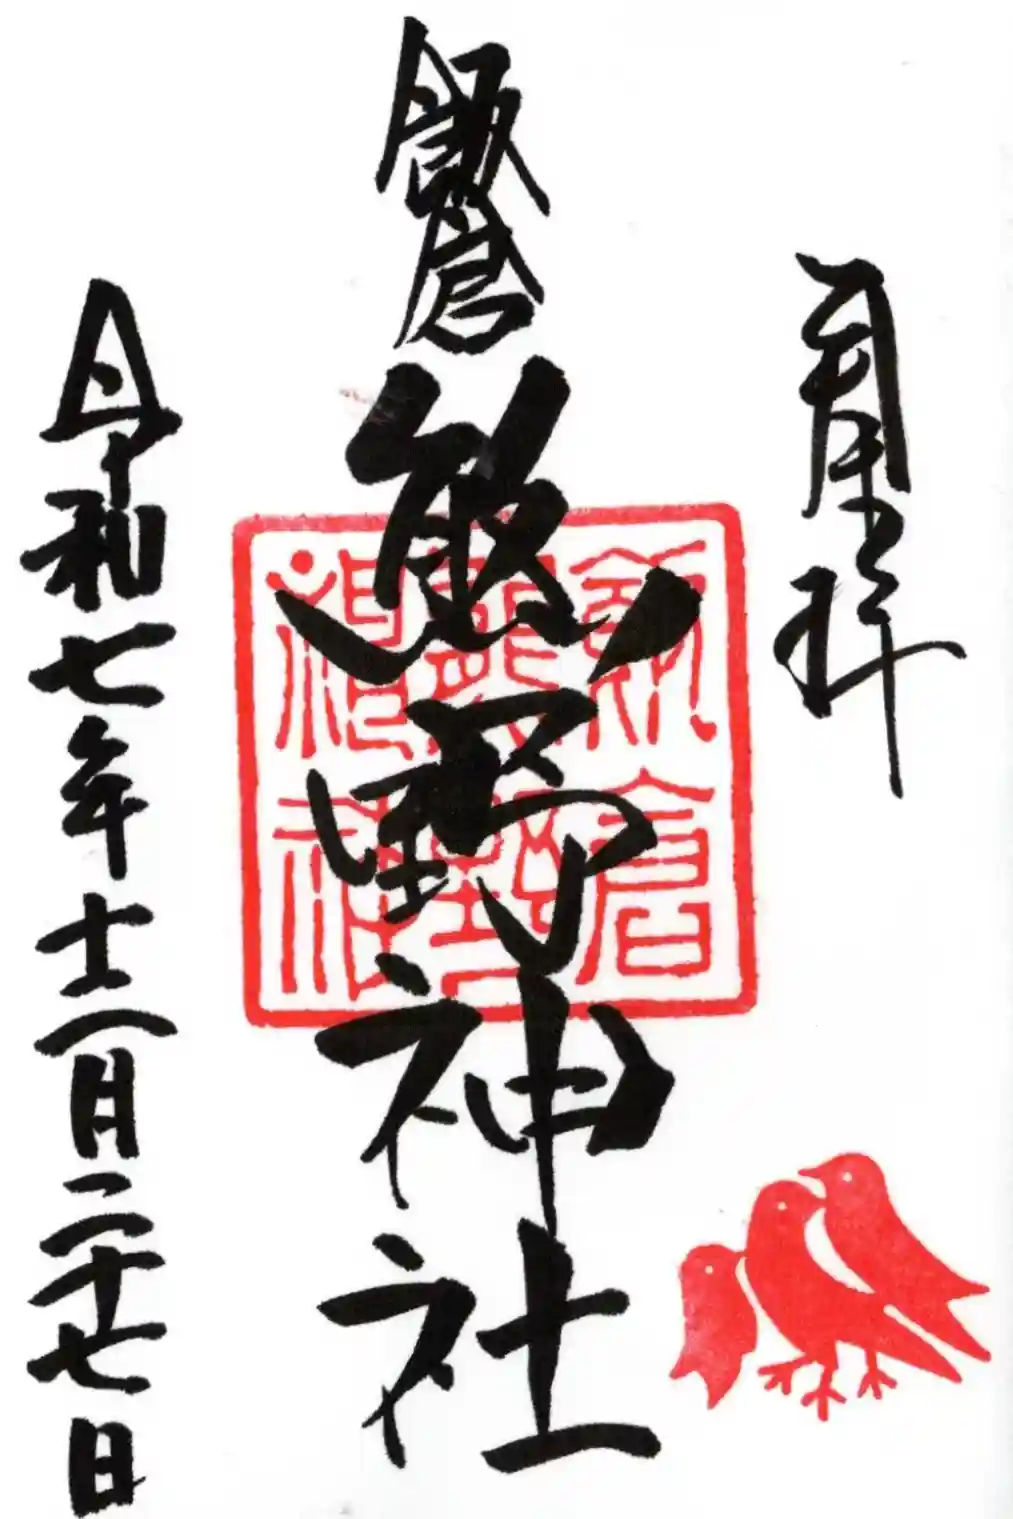 奉拝
飯倉
熊野神社
飯倉
熊野
神社
令和七年十二月二十七日